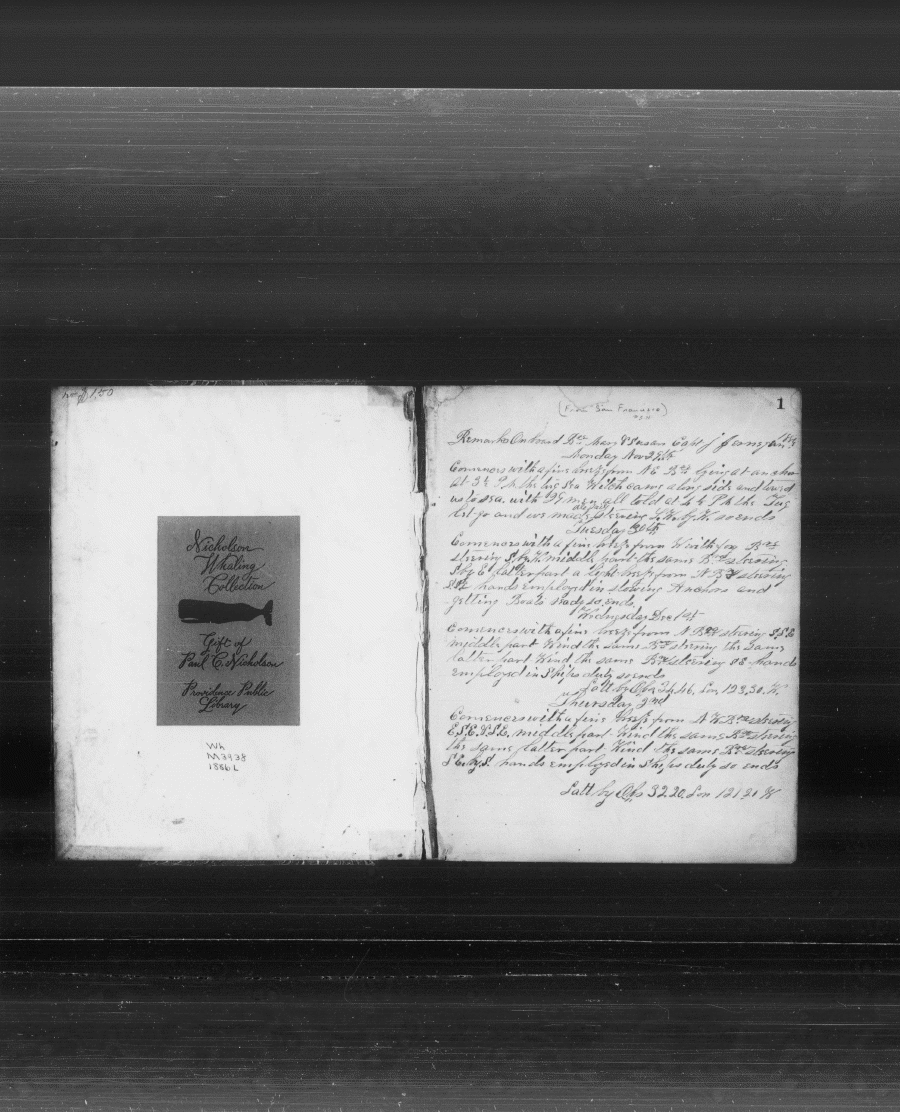 $1.50
Nicholson
Whaling
Collection
Gift of
Paul C. Nicholson
Providence Public
Library
Wh
M3938
1886 L
1
(From San Francisco)
Remarks Onboard Bk Mary & Susan Capt
Monday Nov 29th
Comences with a fine breeze from N E Bark lying at anchor
at 3½ P.M. the tug Sea Witch came along side and towed
us to sea. with 29 men all told at 4½ P M the Tug
let go and we made sail steering S.W. by W. so ends
Tuesday 30th
Comences with a fine breeze from W with fog Bark
steering S. by W. middle part the same Bark steering
S by E latter part a light breeze from N Bark steering
S E hands employed in stowing Anchors and
getting Boats ready so ends
Wednesday Dec 1st
Comences with a fine breeze from N Bark steering S.S.E
middle part Wind the same Bark steering the same
latter part Wind the same Bark steering SE hands
employed in Ships duty so ends
Latt by Obs 34.46. Lon 123.30. W.
Thursday 2nd
Comences with a fine breeze from N W. Bark steering
E.S.E. middle part Wind the same Bark steering
the same latter part Wind the same Bark steering
S E. by S. hands employed in Ships duty so ends
Latt by Obs 32.20. Lon 121.31 W